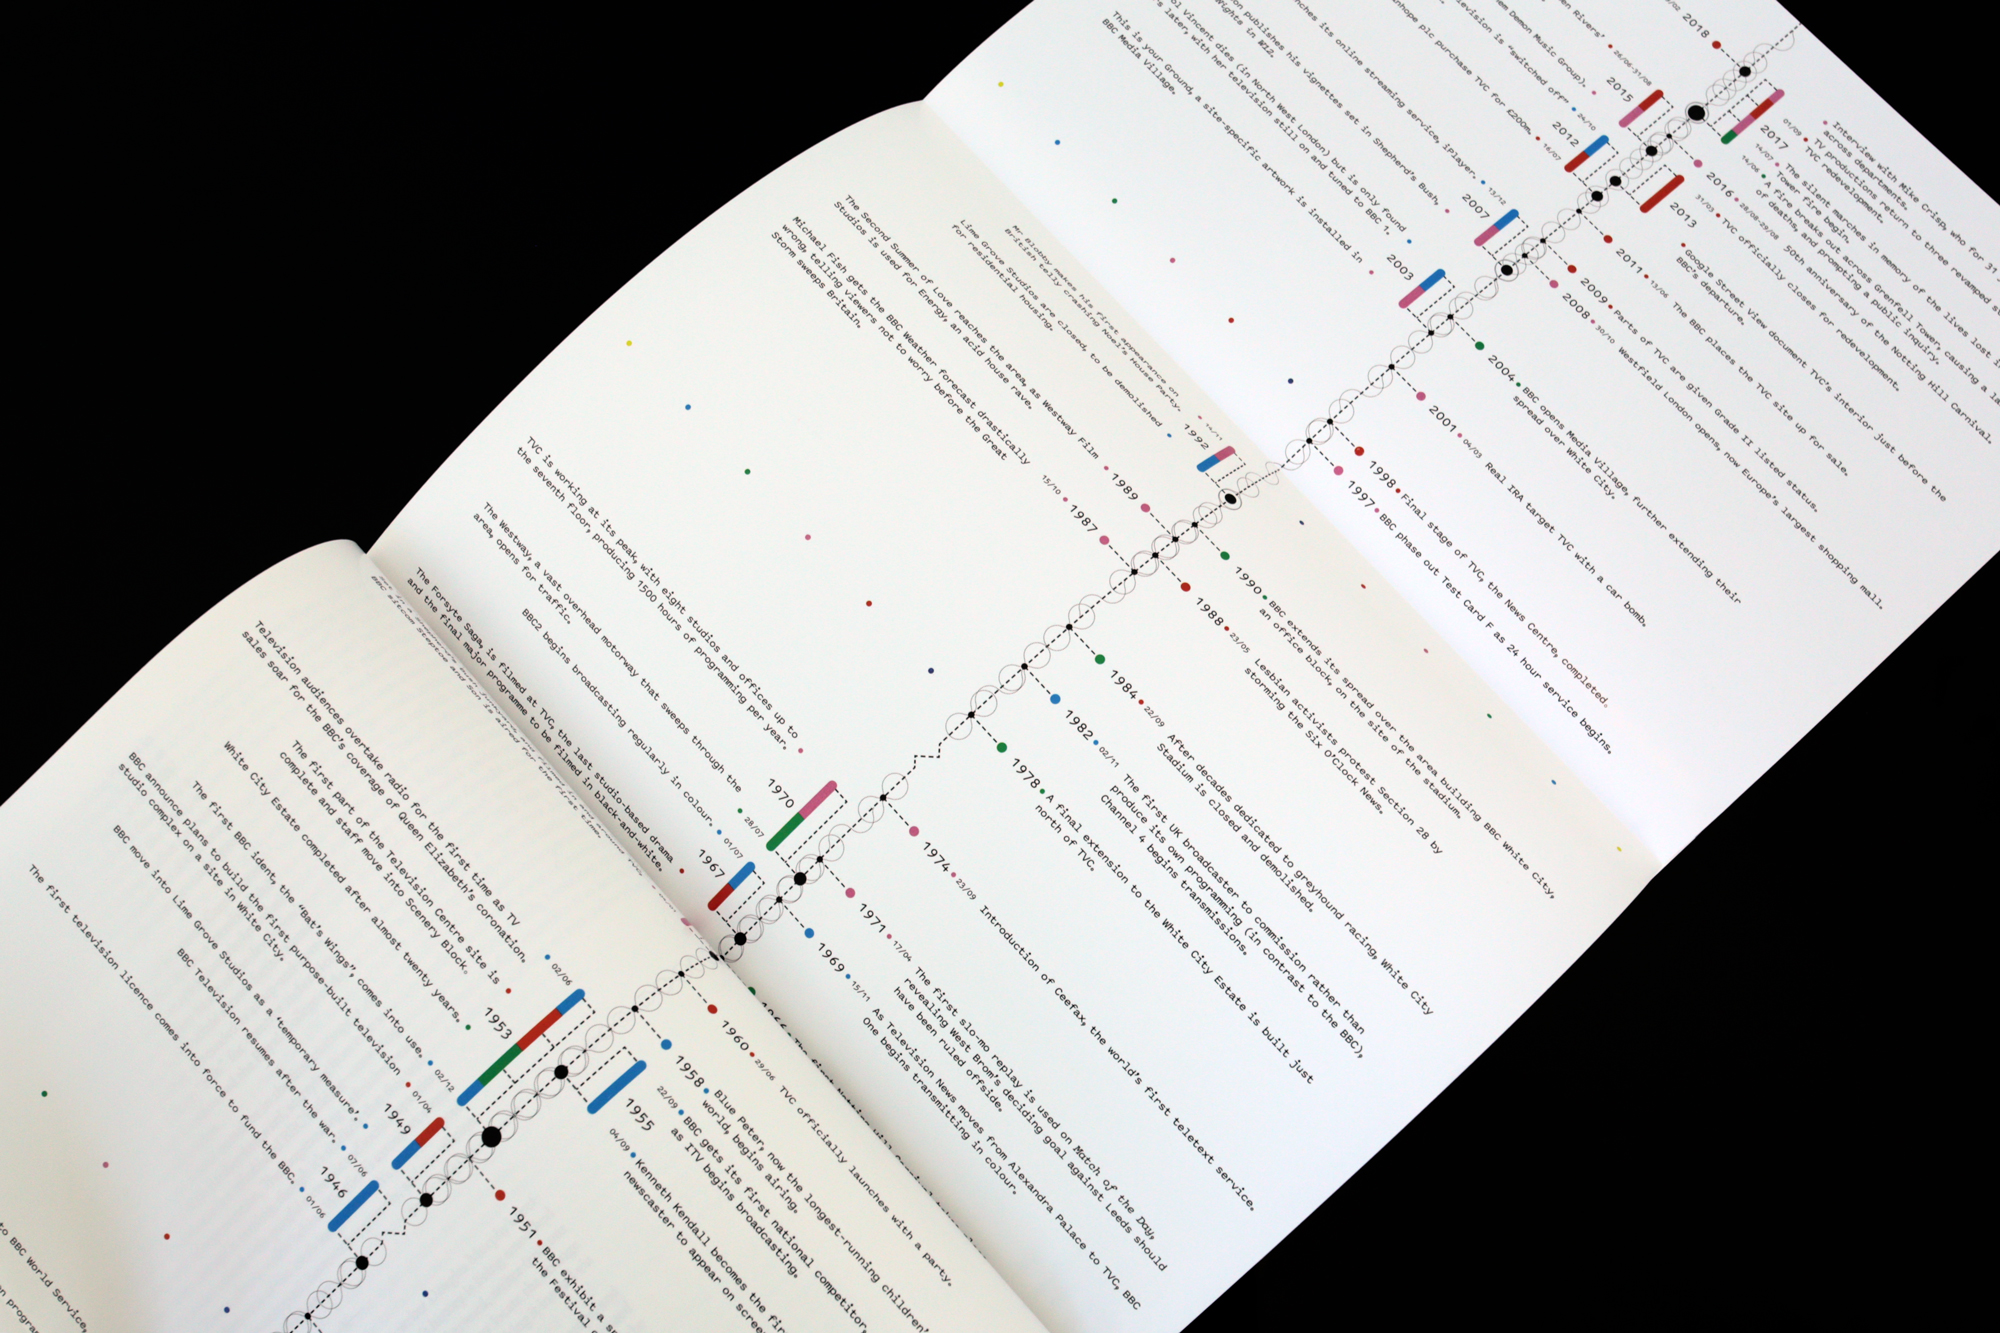 to BBC World Service,
The first television licence comes into force to fund the BBC. 01/06
BBC Television resumes after the war. 07/06
1946
BBC move into Lime Grove Studios as a 'temporary measure'.
BBC announce plans to build the first purpose-built television
studio complex on a site in White City.
01/04
The first BBC ident, the "Bat's Wings", comes into use. 02/12
1949
1951 BBC exhibit a
the Festival
White City Estate completed after almost twenty years.
The first part of the Television Centre site is
complete and staff move into Scenery Block.
Television audiences overtake radio for the first time as TV
sales soar for the BBC's coverage of Queen Elizabeth's coronation.
02/06
1953
1955
22/09 BBC gets its first national competitor,
as ITV begins broadcasting.
04/09 Kenneth Kendall becomes the
newscaster to appear on
1958 Blue Peter, now the longest-running children'
world, begins airing.
1960 29/06 TVC officially launches with a party.
BBC sitcom Steptoe and Son is aired for the first time.
The Forsyte Saga, is filmed at TVC, the last studio-based drama
and the final major programme to be filmed in black-and-white.
BBC2 begins broadcasting regularly in colour. 01/07
1967
1969 15/11 As Television News moves from Alexandra Palace to TVC, BBC
One begins transmitting in colour.
The Westway, a vast overhead motorway that sweeps through the
area, opens for traffic.
28/07
TVC is working at its peak, with eight studios and offices up to
the seventh floor, producing 1500 hours of programming per year.
1970
1971 17/04 The first slo-mo replay is used on Match of the Day,
revealing West Brom's deciding goal against Leeds should
have been ruled offside.
1974 23/09 Introduction of Ceefax, the world's first teletext service.
1978 A final extension to the White City Estate is built just
north of TVC.
1982 02/11 The first UK broadcaster to commission rather than
produce its own programming (in contrast to the BBC),
Channel 4 begins transmissions.
1984 22/09 After decades dedicated to greyhound racing, White City
Stadium is closed and demolished.
Michael Fish gets the BBC Weather forecast drastically
wrong, telling viewers not to worry before the Great
Storm sweeps Britain.
15/10
1987
1988 23/05 Lesbian activists protest Section 28 by
storming the Six O'Clock News.
The Second Summer of Love reaches the area, as Westway Film
Studios is used for Energy, an acid house rave.
1989
1990 BBC extends its spread over the area building BBC White City,
an office block, on the site of the stadium.
Lime Grove Studios are closed, to be demolished
for residential housing.
Mr Blobby makes his first appearance on
British telly crashing Noel's House Party.
1992
1997 BBC phase out Test Card F as 24 hour service begins.
1998 Final stage of TVC, the News Centre, completed.
2001 04/03 Real IRA target TVC with a car bomb.
This is your Ground, a site-specific artwork is installed in
BBC Media Village.
ol Vincent dies (in North West London) but is only found
s later, with her television still on and tuned to BBC 1.
2003
2004 BBC opens Media Village, further extending their
spread over White City.
on publishes his vignettes set in Shepherd's Bush,
Nights in W12.
nches its online streaming service, iPlayer. 13/12
2007
2008 30/10 Westfield London opens, now Europe's largest shopping mall.
2009 Parts of TVC are given Grade II listed status.
2011 13/06 The BBC places the TVC site up for sale.
nhope plc purchase TVC for £200m. 16/07
levision is "switched off" 24/10
2012
2013
Google Street View document TVC's interior just before the
BBC's departure.
31/03 TVC officially closes for redevelopment.
em Demon Music Group).
en Rivers' 26/06-31/08
2015
2016 28/08-29/08 50th anniversary of the Notting Hill Carnival.
2017
14/06 A fire breaks out across Grenfell Tower, causing a
of deaths, and prompting a public inquiry.
14/07 The silent marches in memory of the lives lost
Tower fire begin.
01/09 TV productions return to three revamped
TVC redevelopment.
Interview with Mike Crisp, who for 31
across departments.
2018